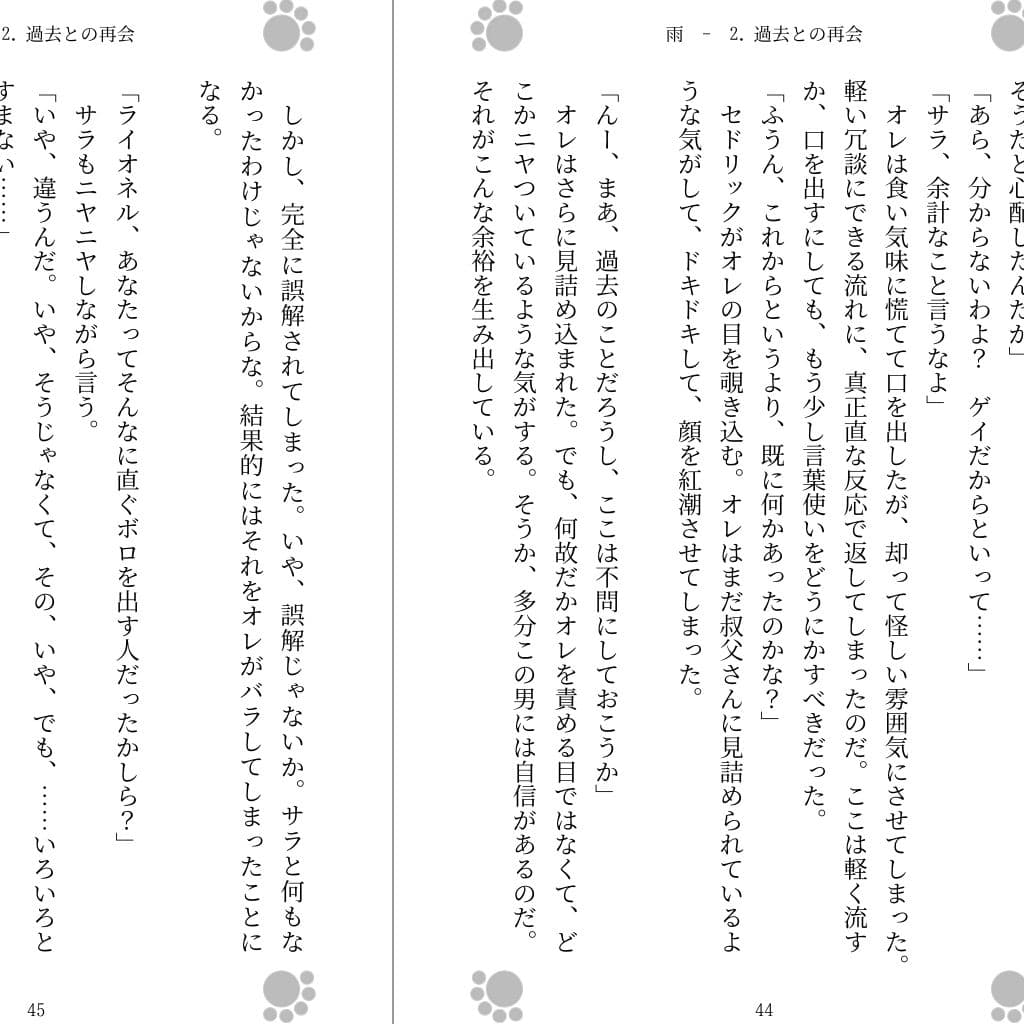 雨 － 2. 過去との再会
「あら、分からないわよ？　ゲイだからといって……」
「サラ、余計なこと言うなよ」
　オレは食い気味に慌てて口を出したが、却って怪しい雰囲気にさせてしまった。
軽い冗談にできる流れに、真正直な反応で返してしまったのだ。ここは軽く流す
か、口を出すにしても、もう少し言葉使いをどうにかすべきだった。
「ふうん、これからというより、既に何かあったのかな？」
　セドリックがオレの目を覗き込む。オレはまだ叔父さんに見詰められているよ
うな気がして、ドキドキして、顔を紅潮させてしまった。
「んー、まあ、過去のことだろうし、ここは不問にしておこうか」
　オレはさらに見詰め込まれた。でも、何故だかオレを責める目ではなくて、ど
こかニヤついているような気がする。そうか、多分この男には自信があるのだ。
それがこんな余裕を生み出している。
44
2. 過去との再会
　しかし、完全に誤解されてしまった。いや、誤解じゃないか。サラと何もな
かったわけじゃないからな。結果的にはそれをオレがバラしてしまったことに
なる。
「ライオネル、あなたってそんなに直ぐボロを出す人だったかしら？」
　サラもニヤニヤしながら言う。
「いや、違うんだ。いや、そうじゃなくて、その、いや、でも、……いろいろと
すまない……」
45